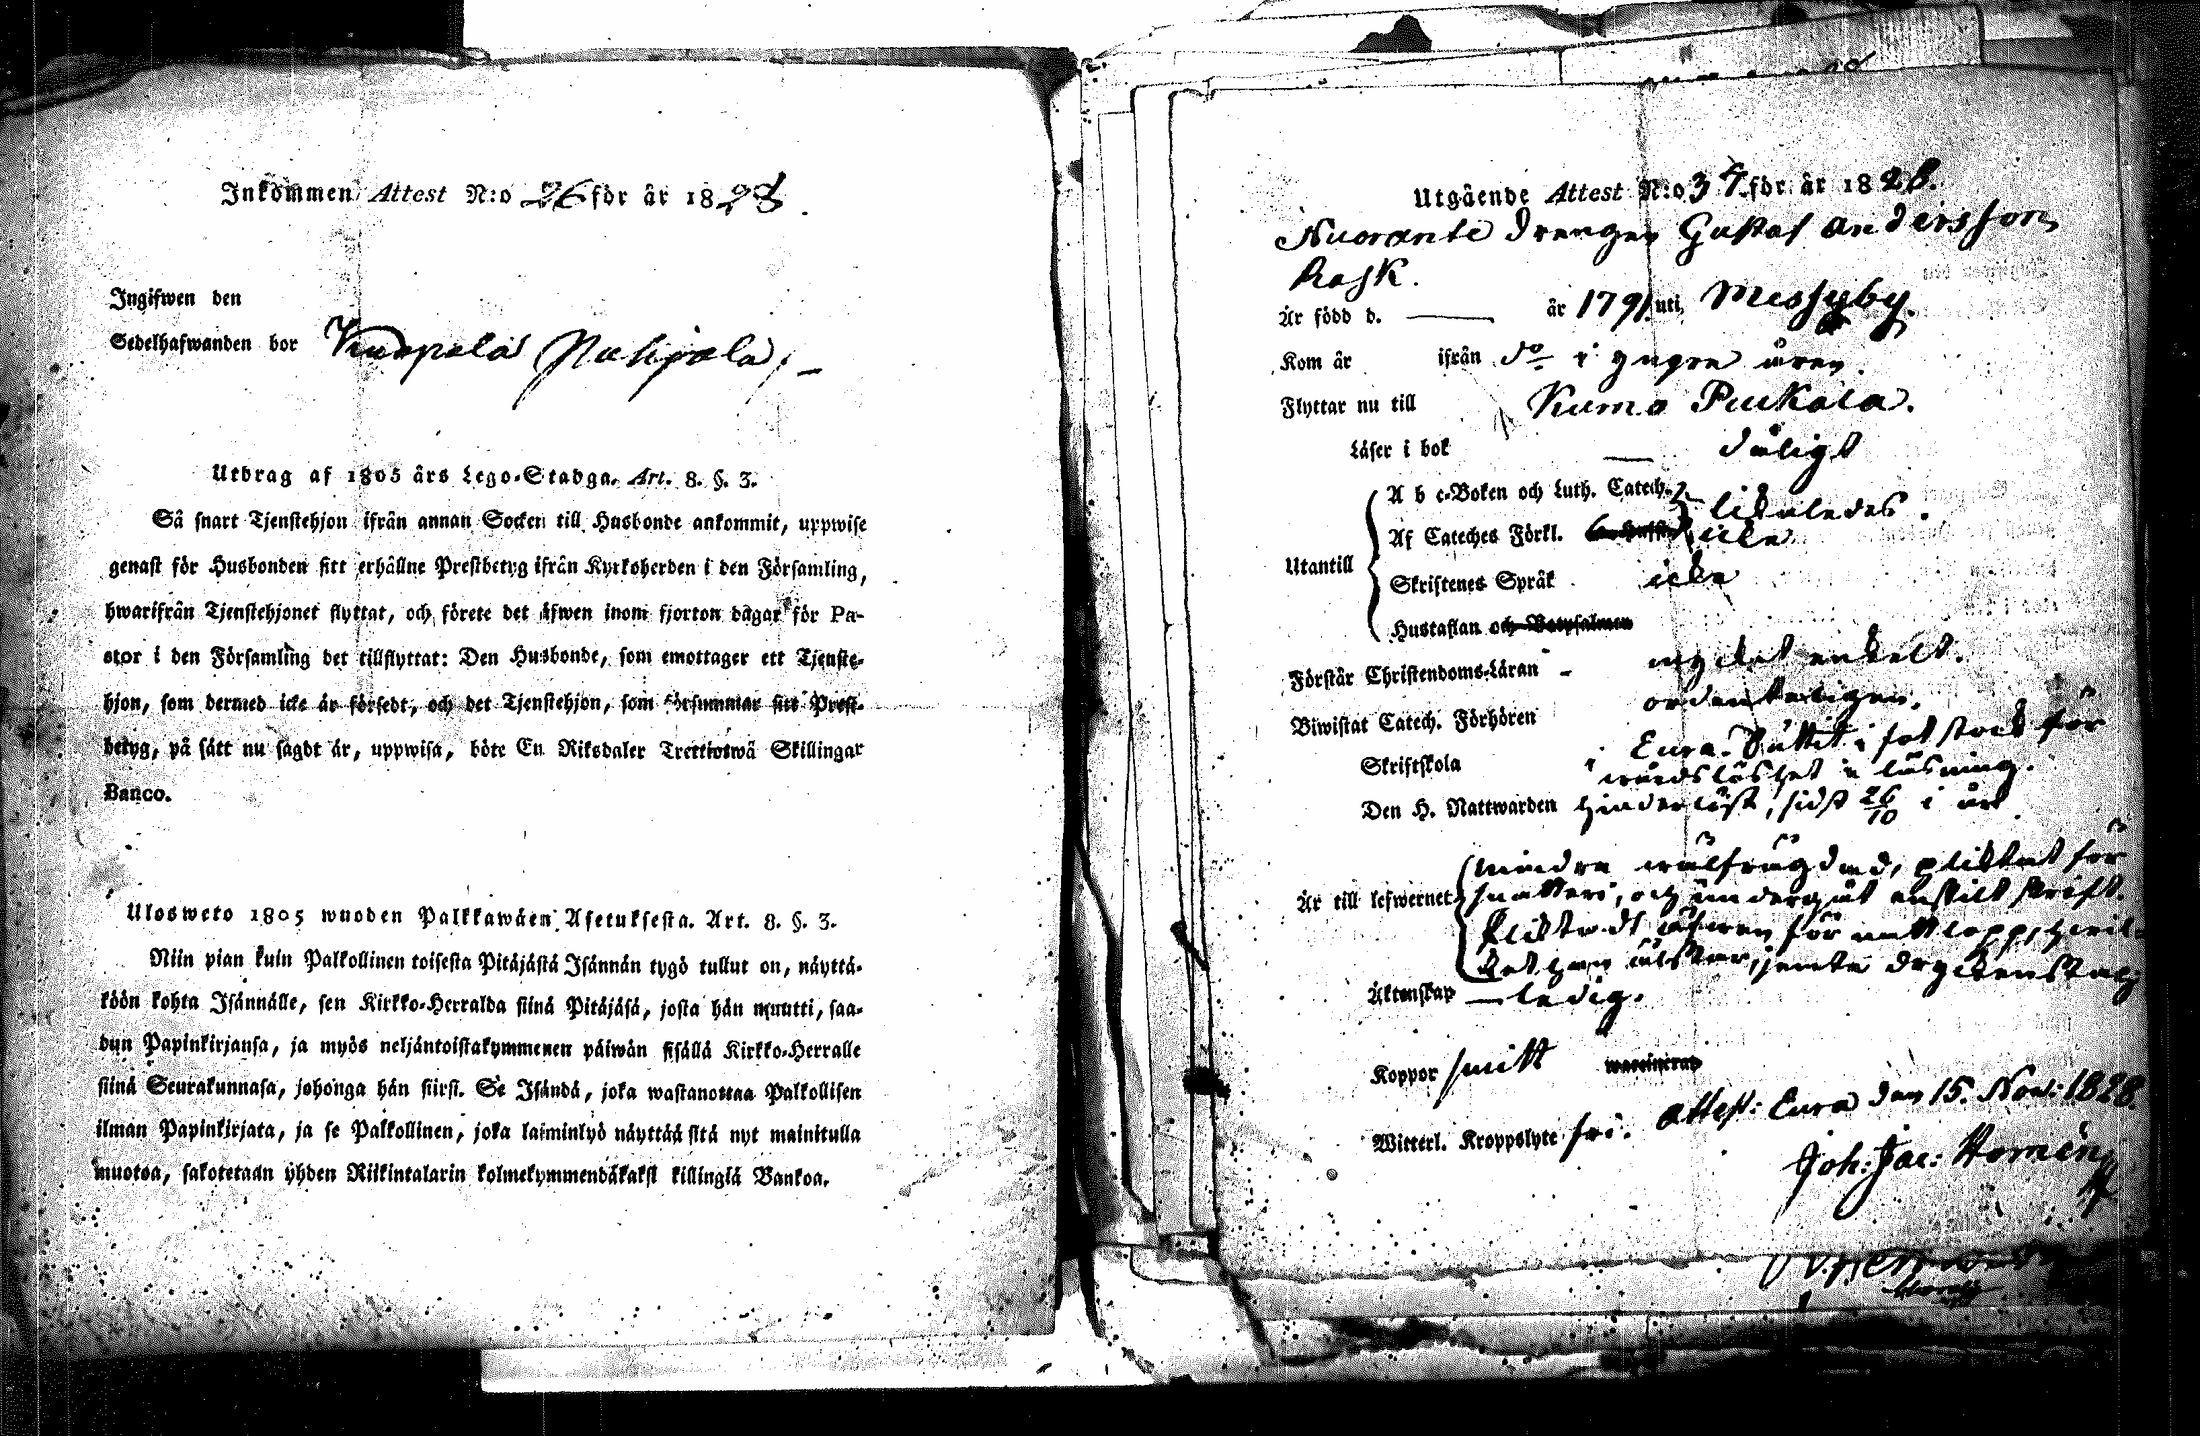 Inkommen Attest N:o 26 för år 1828.
Ingifwen den
Sedelhafwanden bor
Utdrag af 1805 års Lego-Stadga. Art. 8. §. 3.
Så snart Tjenstehjon ifrån annan Socken till Husbonde ankommit, uppwise
genast för Husbonden sitt erhållne Prestbetyg ifrån Kyrkoherden i den Församling,
hwarifrån Tjenstehjonet flyttat, och förete det äfwen inom fjorton dagar för Pa-
stor i den Församling det tillflyttat: Den Husbonde, som emottager ett Tjenste-
hjon, som dermed icke är försedt, och det Tjenstehjon, som försummar sitt Prest-
betyg, på sätt nu sagdt är, uppwisa, böte En Riksdaler Trettiotwå Skillingar
Banco.
Ulosweto 1805 wuoden Palkkawäen Asetuksesta. Art. 8. §. 3.
Niin pian kuin Palkollinen toisesta Pitäjästä Isännän tygö tullut on, näyttä-
köön kohta Isännälle, sen Kirkko-Herralda siinä Pitäjäsä, josta hän muutti, saa-
dun Papinkirjansa, ja myös neljäntoistakymmenen päiwän sisällä Kirkko-Herralle
siinä Seurakunnasa, johonga hän siirsi. Se Isändä, joka wastanottaa Palkollisen
ilman Papinkirjata, ja se Palkollinen, joka laiminlyö näyttää sitä nyt mainitulla
muotoa, sakotetaan yhden Riikintalarin kolmekymmendäkaksi killingiä Bankoa.
Utgående Attest N:o 34 för år 1828.
drengen Gustaf Andersson
Rask.
Är född d. — år 1791 uti
Kom år ifrån do i yngre åren.
Flyttar nu till Kumo Puckala.
Läser i bok — dåligt
A b c-Boken och Luth. Catech. likaledes.
Af Cateches Förkl. icke
Utantill
Skriftenes Språk icke
Hustaflan och Botpsalmen
Förstår Christendoms-Läran - mycket enkelt.
Biwistat Catech. Förhören ordenteligen.
Skriftskola i Eura. Suttit i fotstock för
wårdslöshet i läsning.
Den H. Nattwarden hinderlöst, sidst 26/10 i år
mindre wälfrägdad, pliktat för
Är till lefwernet snatteri, och undergåt enskilt skrift.
Pliktadt äfwen för nattlopp, hwil-
ket han älskar, jemte dryckenskap
Äktenskap — ledig.
Koppor haft vaccinerad
Witterl. Kroppslyte fri. Attest: Eura den 15. Nov: 1828.
Joh: Jac: Homén